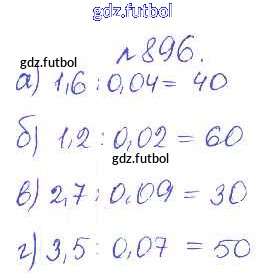 gdz.futbol
№ 896.
gdz.futbol
а) 1,6 : 0,04 = 40
б) 1,2 : 0,02 = 60
gdz.futbol
в) 2,7 : 0,09 = 30
г) 3,5 : 0,07 = 50
gdz.futbol